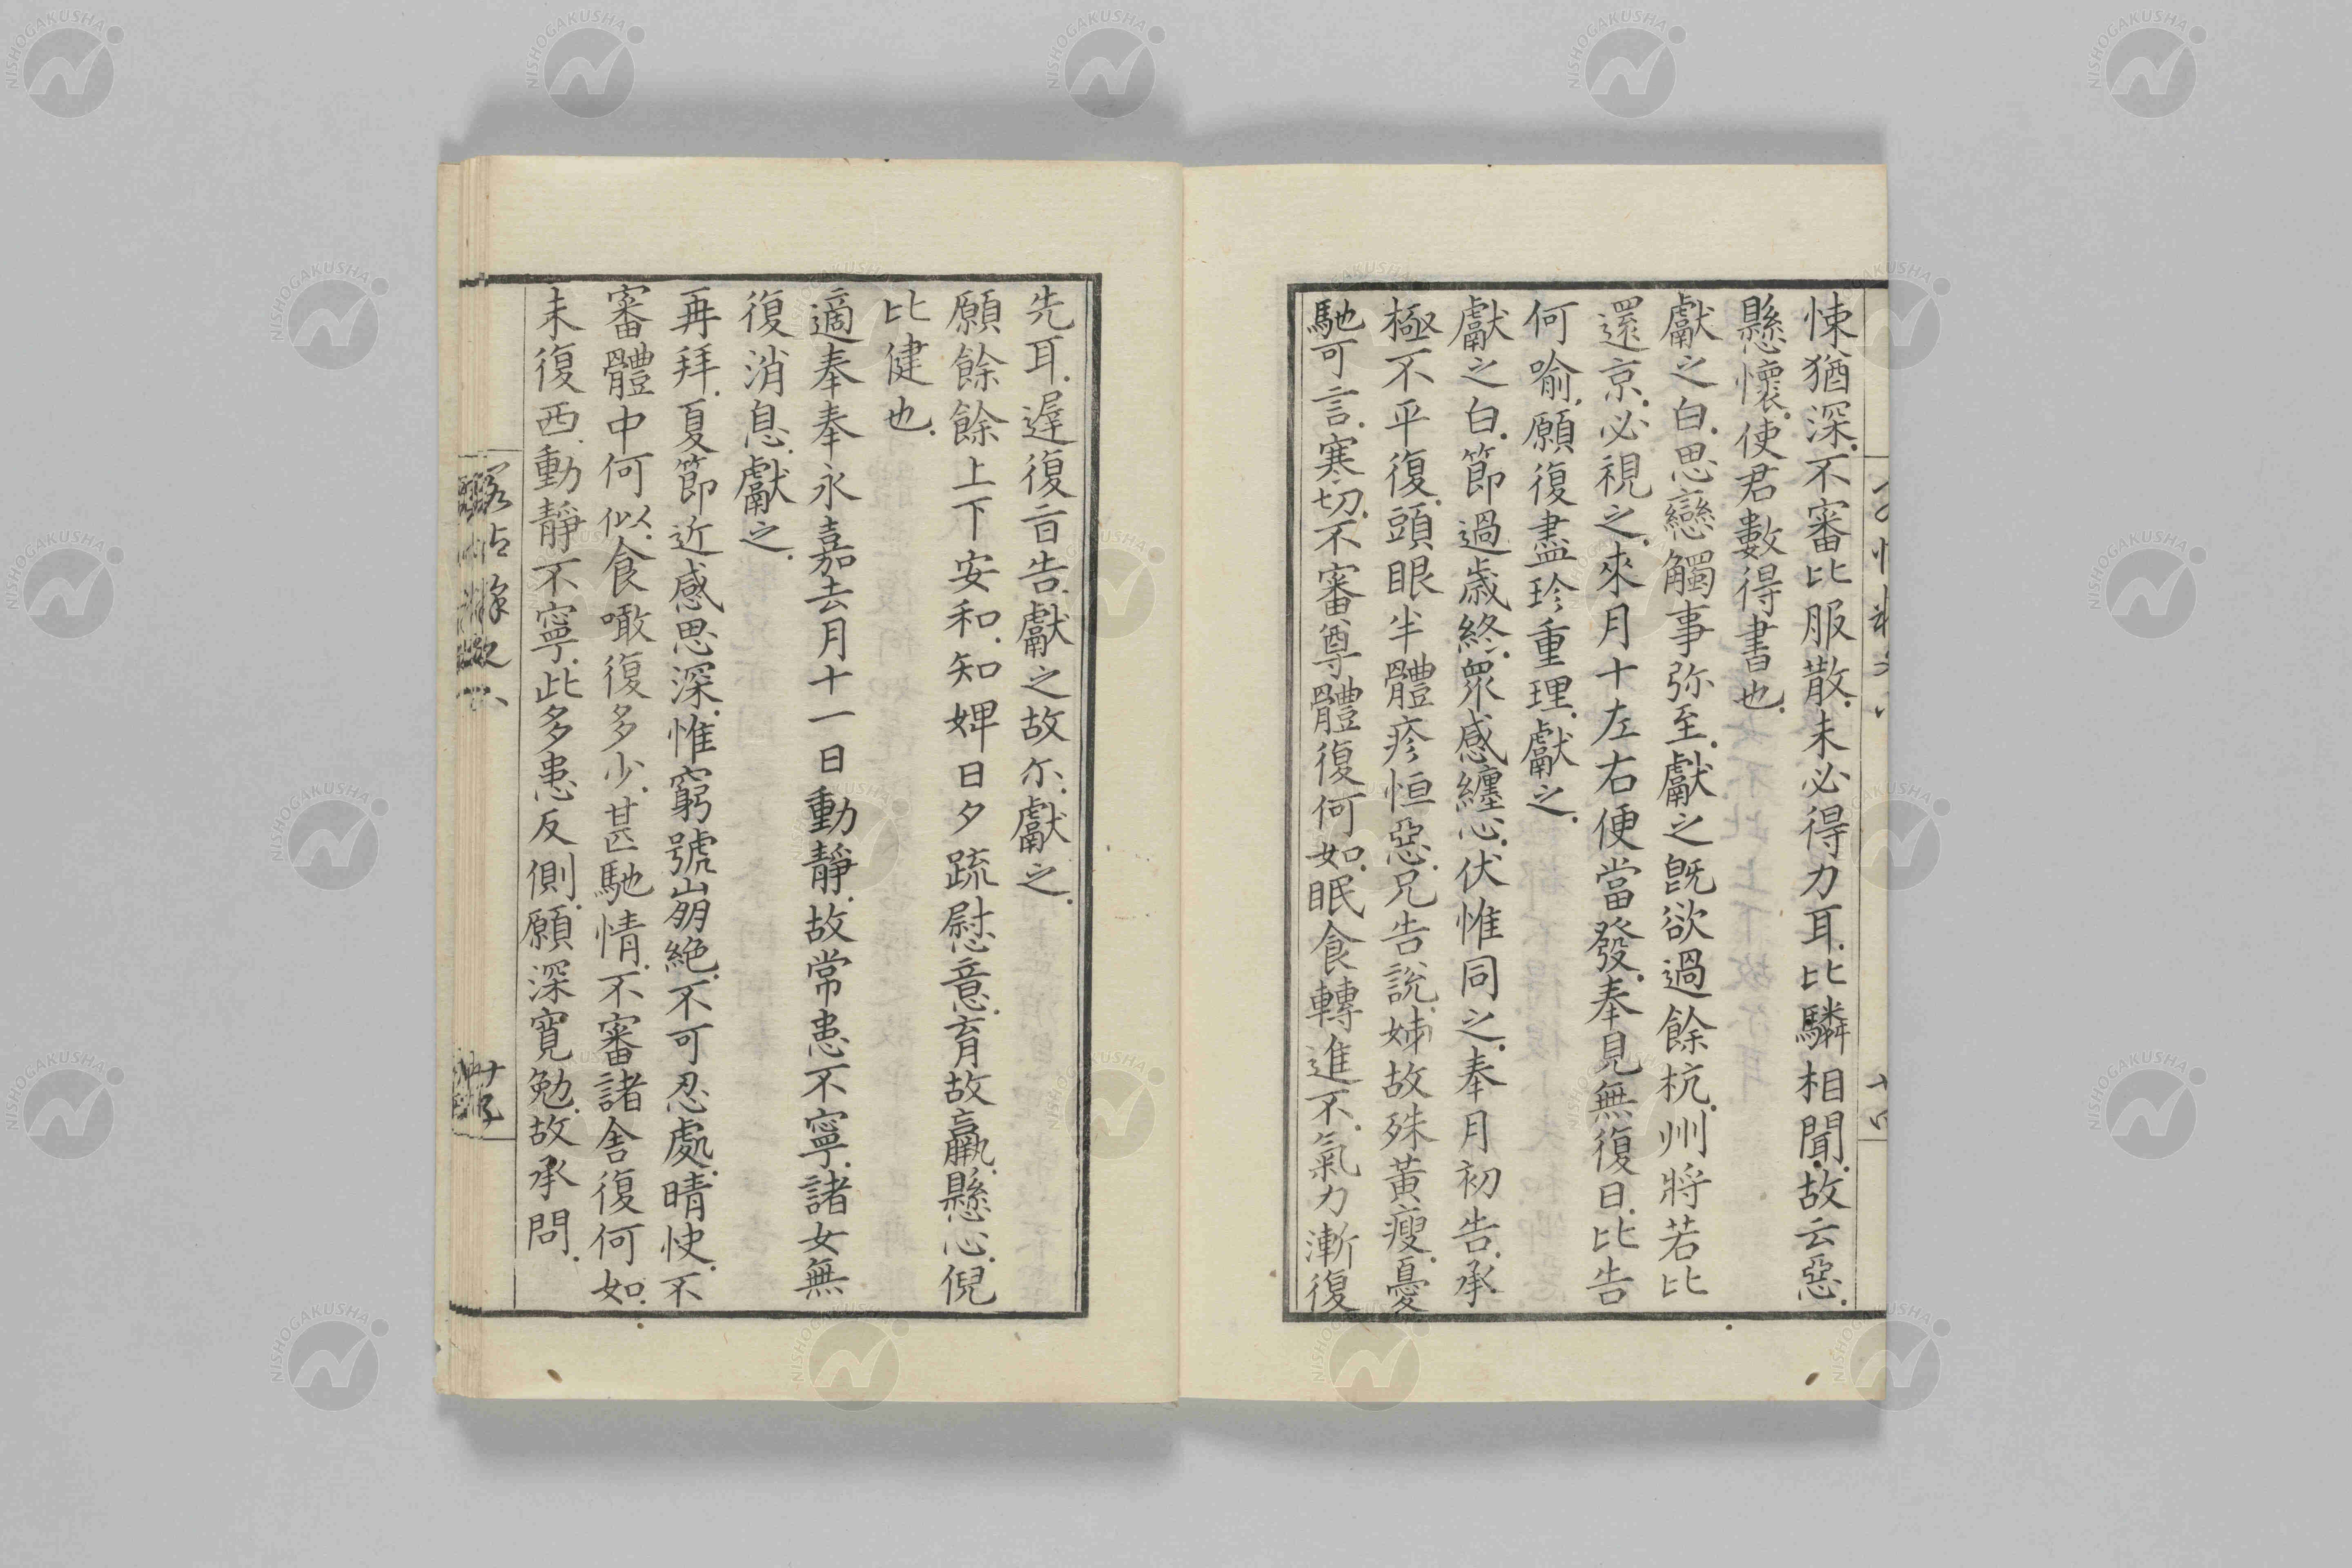 悚猶深.不審比服散.未必得力耳.比驎相聞.故云惡.
懸懷.使君數得書也.
獻之白.思戀觸事弥至.獻之旣欲過餘杭.州將若比
還京.必視之.來月十左右便當發.奉見無復日.比告
何喻.願復盡珍重理.獻之.
獻之白.節過歲終.衆感纏心.伏惟同之.奉月初告.承
極不平復.頭眼半體疼恒惡.兄告說.姊故殊黃瘦.憂
馳可言.寒切.不審尊體復何如.眠食轉進不.氣力漸復
先耳.遅復告.獻之故尒.獻之.
願餘餘上下安和.知婢日夕疏慰意.育故羸.懸心.倪
比健也.
適奉奉永嘉去月十一日動靜.故常患不寧.諸女無
復消息.獻之.
再拜.夏節近感思深.惟窮號崩絕.不可忍處.晴快.不
審體中何似.食噉復多少.甚馳情.不審諸舍復何如.
未復西.動靜不寧.此多患反側.願深寬勉.故承問.